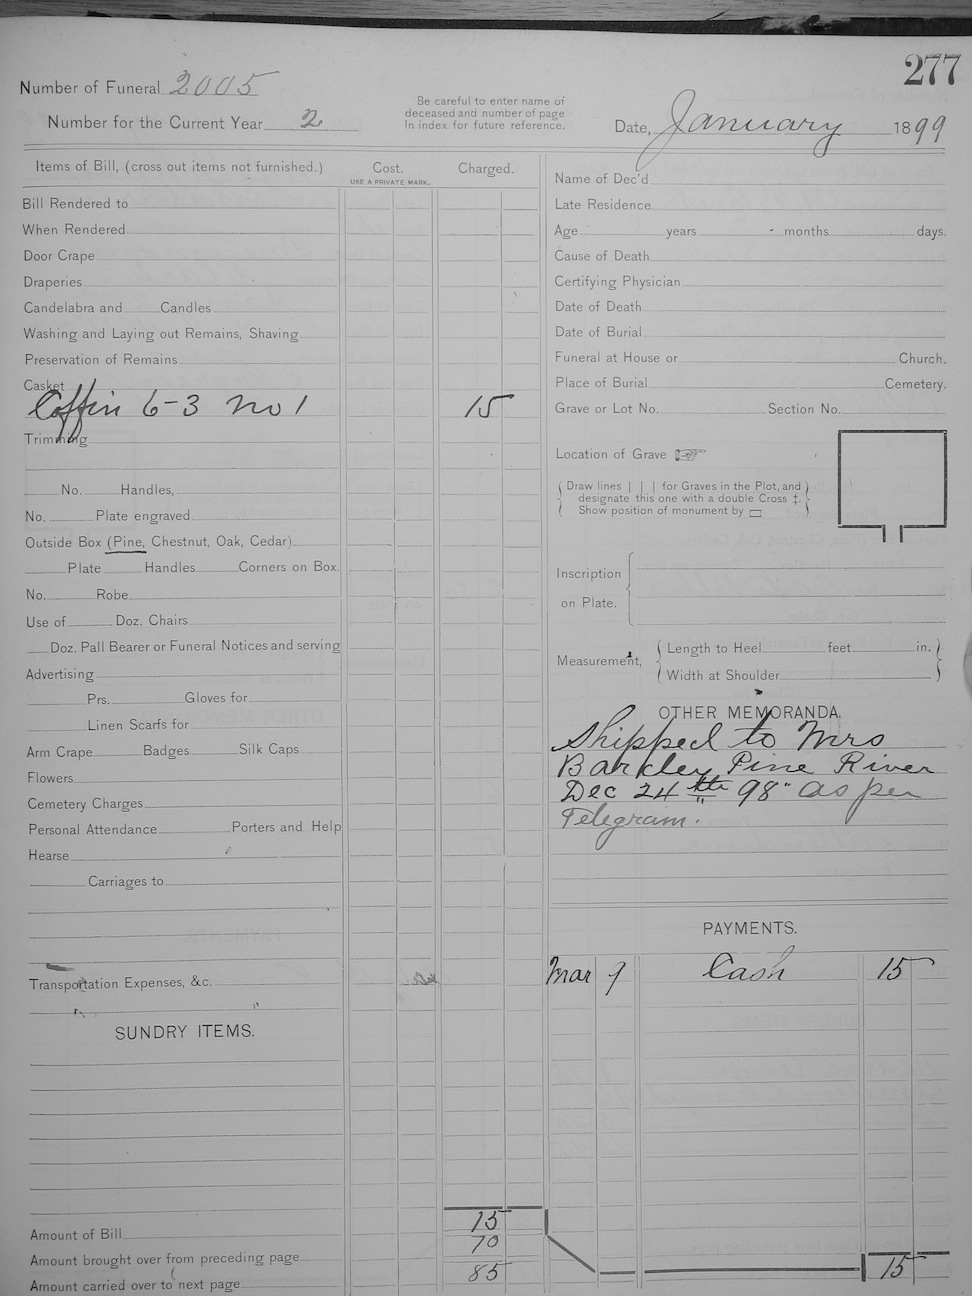 277
Number of Funeral 2005
Number for the Current Year 2
Be careful to enter name of
deceased and number of page
In index for future reference.
Date, January 1899
Items of Bill, (cross out items not furnished.)
Cost.
USE A PRIVATE MARK.
Charged.
Bill Rendered to
When Rendered
Door Crape
Draperies
Candelabra and Candles
Washing and Laying out Remains, Shaving
Preservation of Remains
Casket
Coffin 6-3 No 1 15
Trimming
No. Handles,
No. Plate engraved
Outside Box (Pine, Chestnut, Oak, Cedar)
Plate Handles Corners on Box.
No. Robe
Use of Doz. Chairs
Doz. Pall Bearer or Funeral Notices and serving
Advertising
Prs. Gloves for
Linen Scarfs for
Arm Crape Badges Silk Caps
Flowers
Cemetery Charges
Personal Attendance Porters and Help
Hearse
Carriages to
Transportation Expenses, &c.
SUNDRY ITEMS.
Amount of Bill 15
Amount brought over from preceding page 70
Amount carried over to next page 85
Name of Dec'd
Late Residence
Age years months days.
Cause of Death
Certifying Physician
Date of Death
Date of Burial
Funeral at House or Church.
Place of Burial Cemetery.
Grave or Lot No. Section No.
Location of Grave
Draw lines | | | for Graves in the Plot, and
designate this one with a double Cross ‡.
Show position of monument by ▭
Inscription
on Plate.
Measurement,
Length to Heel feet in.
Width at Shoulder
OTHER MEMORANDA.
Shipped to Mrs
Barkley Pine River
Dec 24th 98" as per
Telegram.
PAYMENTS.
Mar 9 Cash 15
15